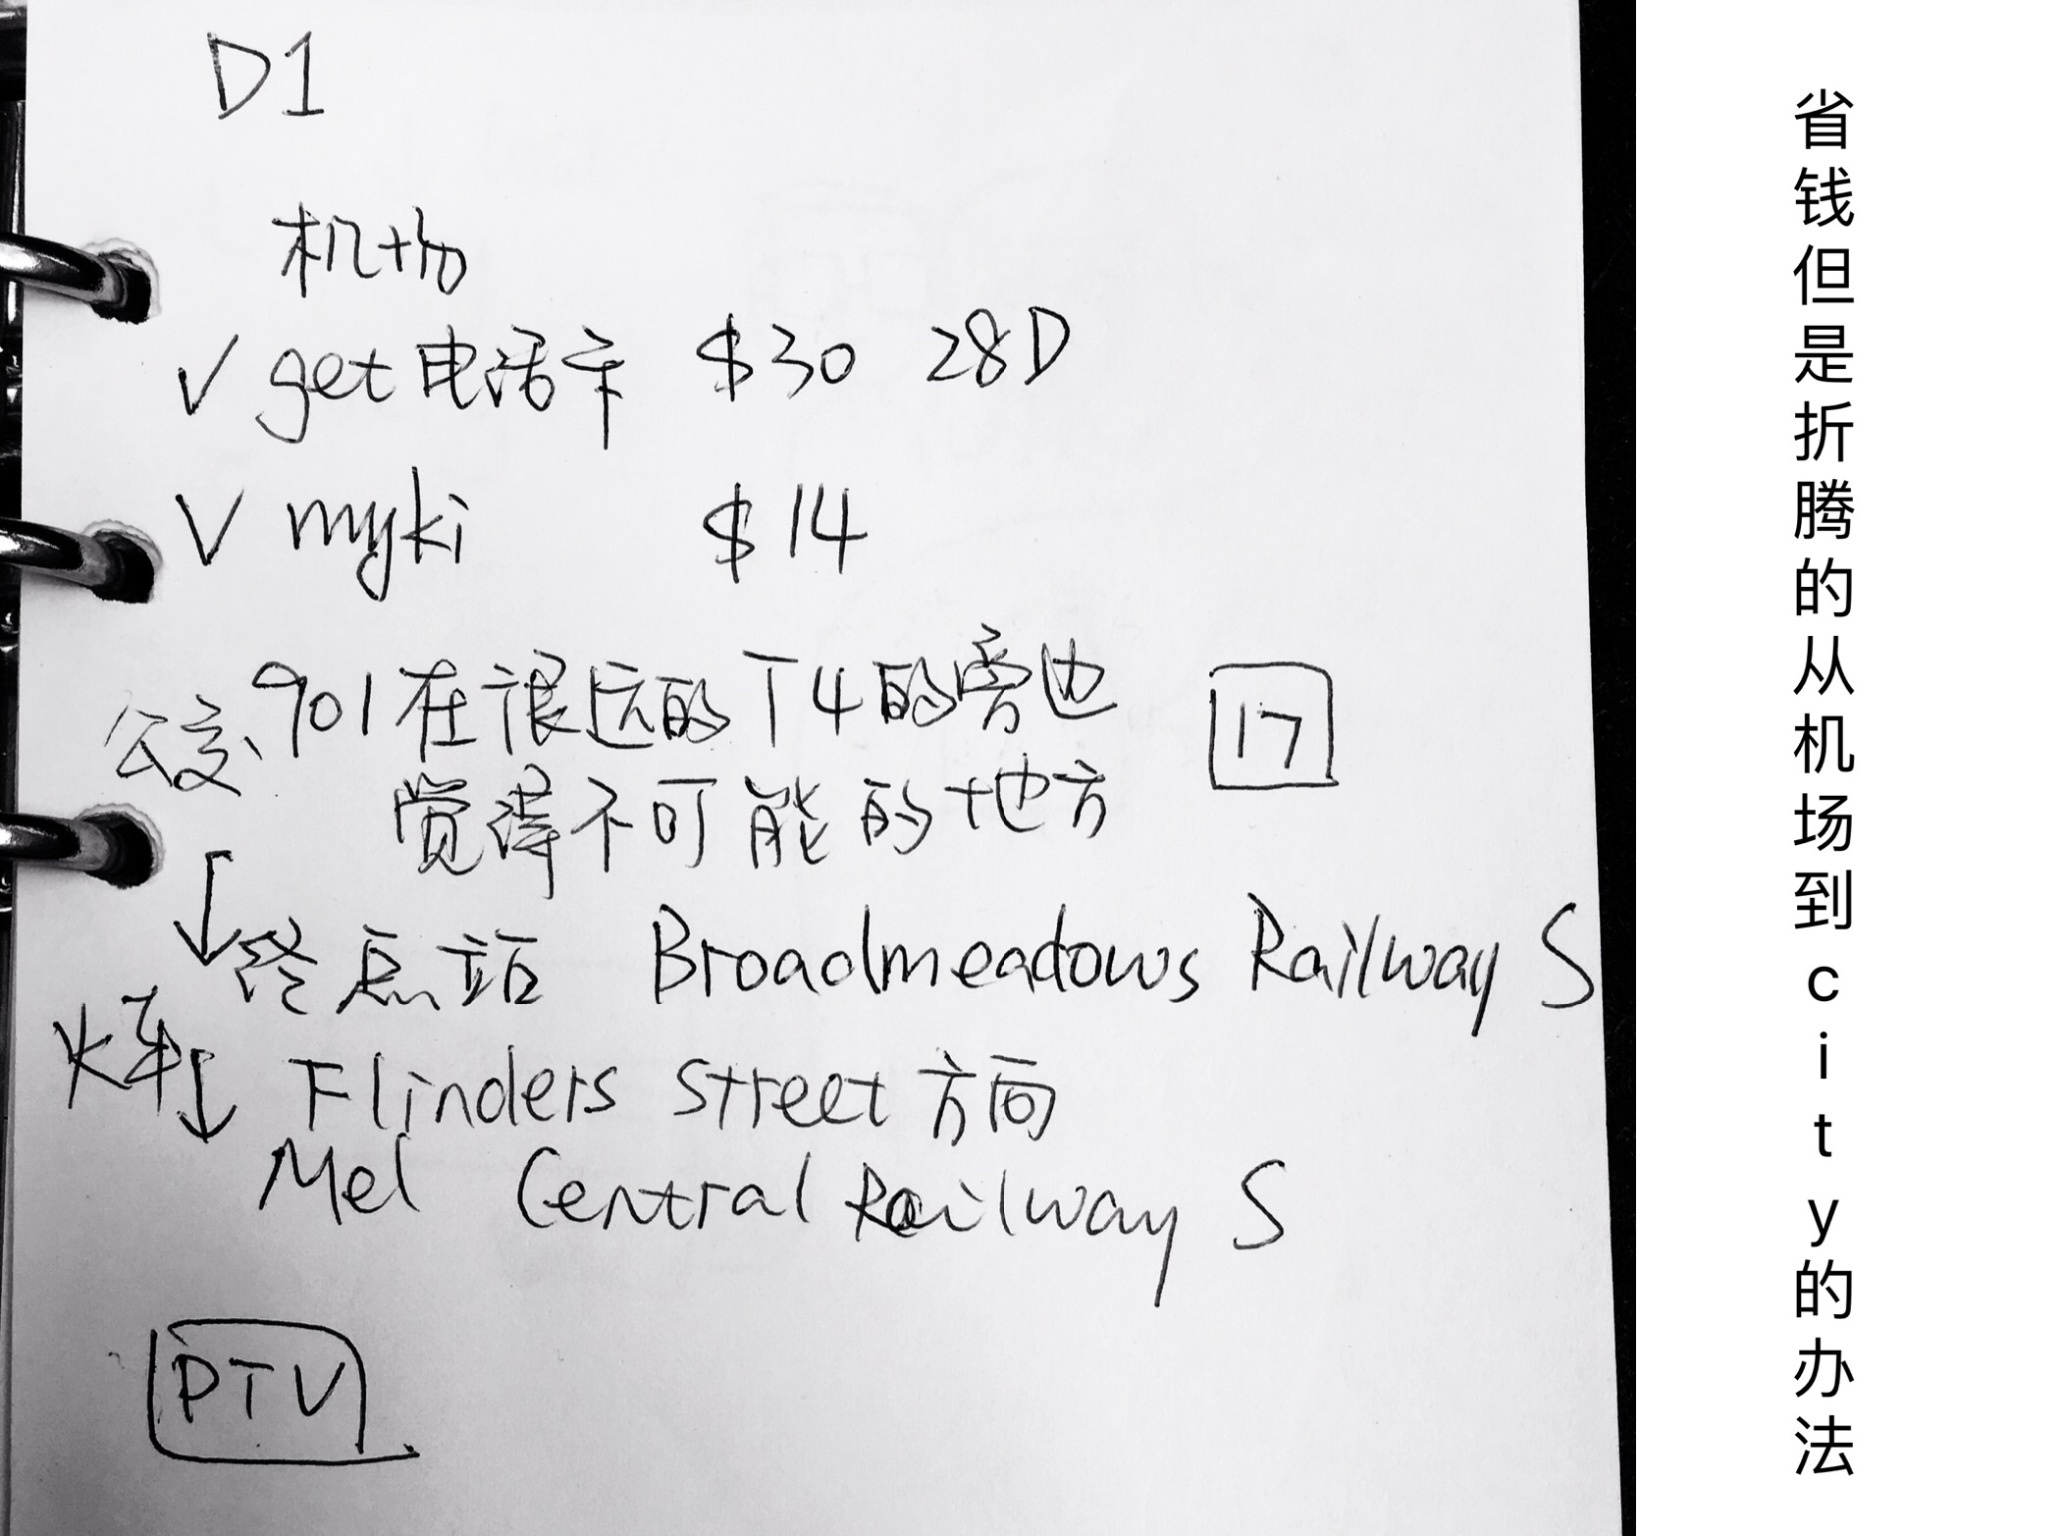 D1
机场
✓ get 电话卡 $30 28D
✓ myki $14
公交 901 在很远的 T4 的旁边 17
觉得不可能的地方
↓ 终点站 Broadmeadows Railway S
火车 ↓ Flinders street 方向
Mel Central Railway S
PTV
省钱但是折腾的从机场到city的办法